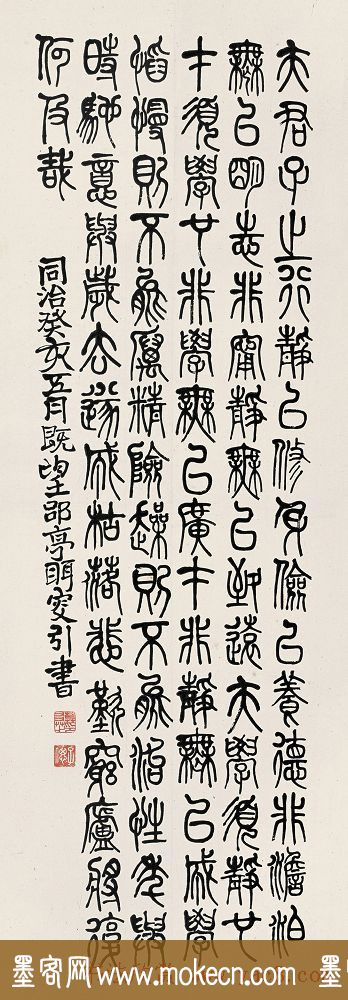 夫君子之行靜以修身儉以養德非澹泊
無以明志非甯靜無以致遠夫學須靜也
才須學也非學無以廣才非靜無以成學
慆慢則不能厲精險躁則不能治性年與
時馳意與歲去遂成枯落悲歎窮廬將復
何及哉
同治癸亥五月既朢郘亭眲叟引書
墨客网 www.mokecn.com 墨客网